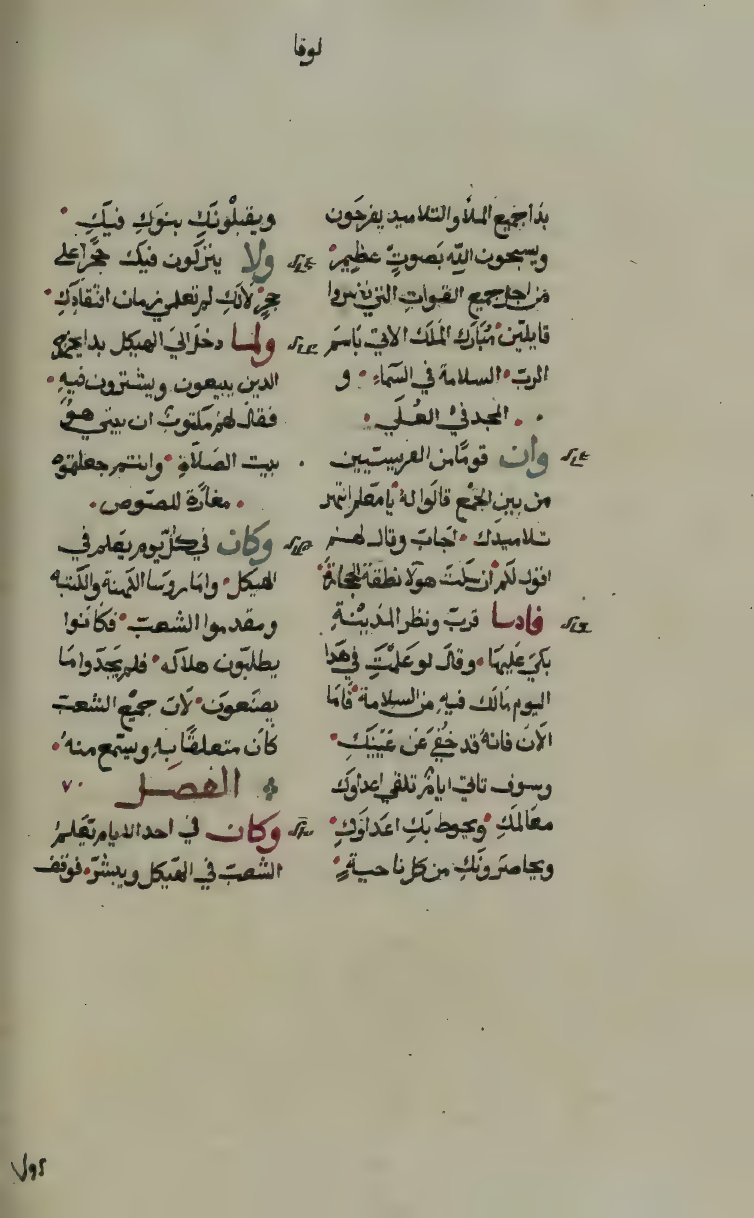 لوقا
بدا جميع الملا والتلاميد يفرحون
ويسبحون الله بصوت عظيم
من اجل جميع القوات التي نظروا
قايلين مبارك الملك الاتي باسم
الرب السلامة في السماء و
المجد في العلي
وان قومًا من الفريسيين
من بين الجمع قالوا له يا معلم انتهر
تلاميدك اجاب وقال لهم
اقول لكم ان سكت هولا نطقة الحجارة
فلدسا قرب ونظر المدينة
بكي عليها وقال لو علمت في هدا
اليوم مالك فيه من السلامة فاما
الان فانه قد خفي عن عينيك
وسوف تاتي ايام تلقي اعداوك
معالمك ويحوط بك اعداوك
ويحاصرونك من كل ناحية
ويقبلونك بنوك فيك
ولا يتركون فيك حجرا علي
حجر لانك لم تعلمي زمان افتقادك
ولما دخل الي الهيكل بدا يخرج
الدين يبيعون ويشترون فيه
فقال لهم مكتوب ان بيتي هو
بيت الصلاة وانتم جعلتموه
مغارة للصوص
وكان في كل يوم يعلم في
الهيكل واما روسا الكهنة والكتبه
ومقدموا الشعب فكانوا
يطلبون هلاكه فلم يجدوا ما
يصنعون لان جميع الشعب
كان متعلقًا به ويستمع منه
الفصل ٧٠
وكان في احد الايام يعلم
الشعب في الهيكل ويبشر فوقف